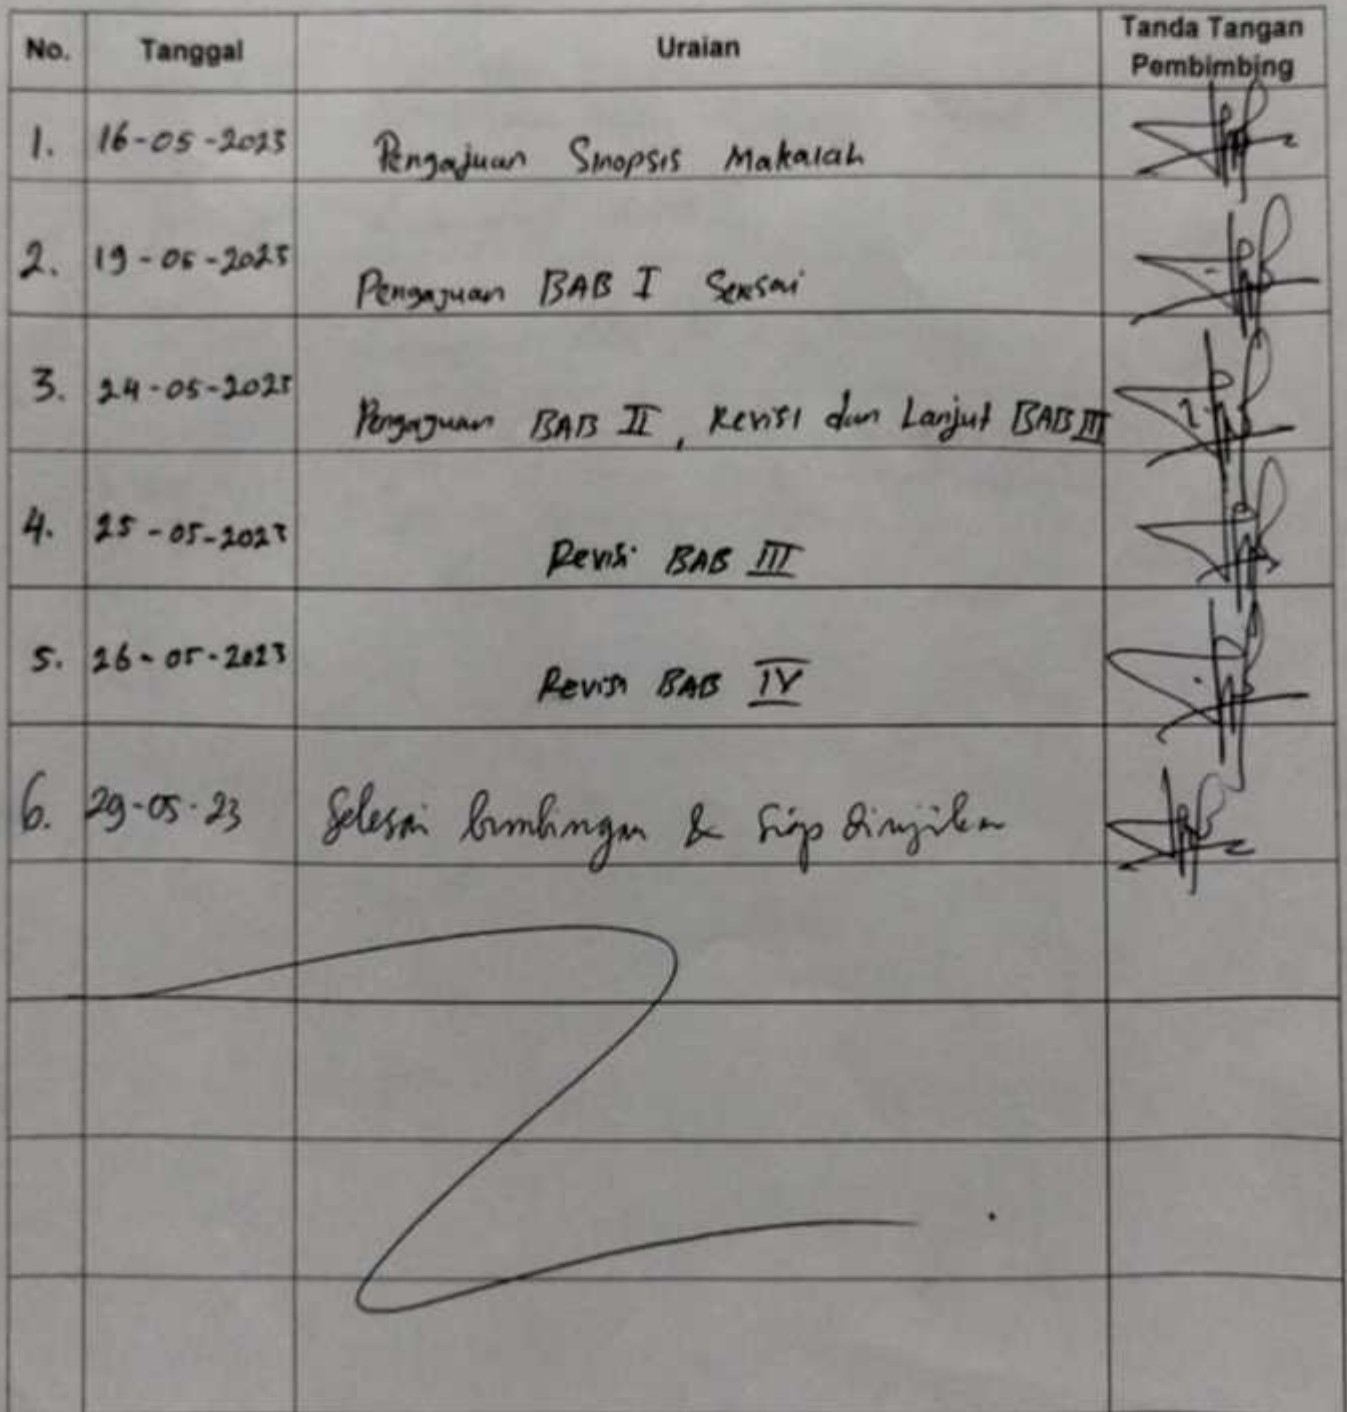 No. Tanggal Uraian Tanda Tangan
Pembimbing
1. 16-05-2023 Pengajuan Sinopsis Makalah
2. 19-05-2023 Pengajuan BAB I Selesai
3. 24-05-2023 Pengajuan BAB II, Revisi dan Lanjut BAB III
4. 25-05-2023 Revisi BAB III
5. 26-05-2023 Revisi BAB IV
6. 29-05-23 Selesai bimbingan & siap diujikan